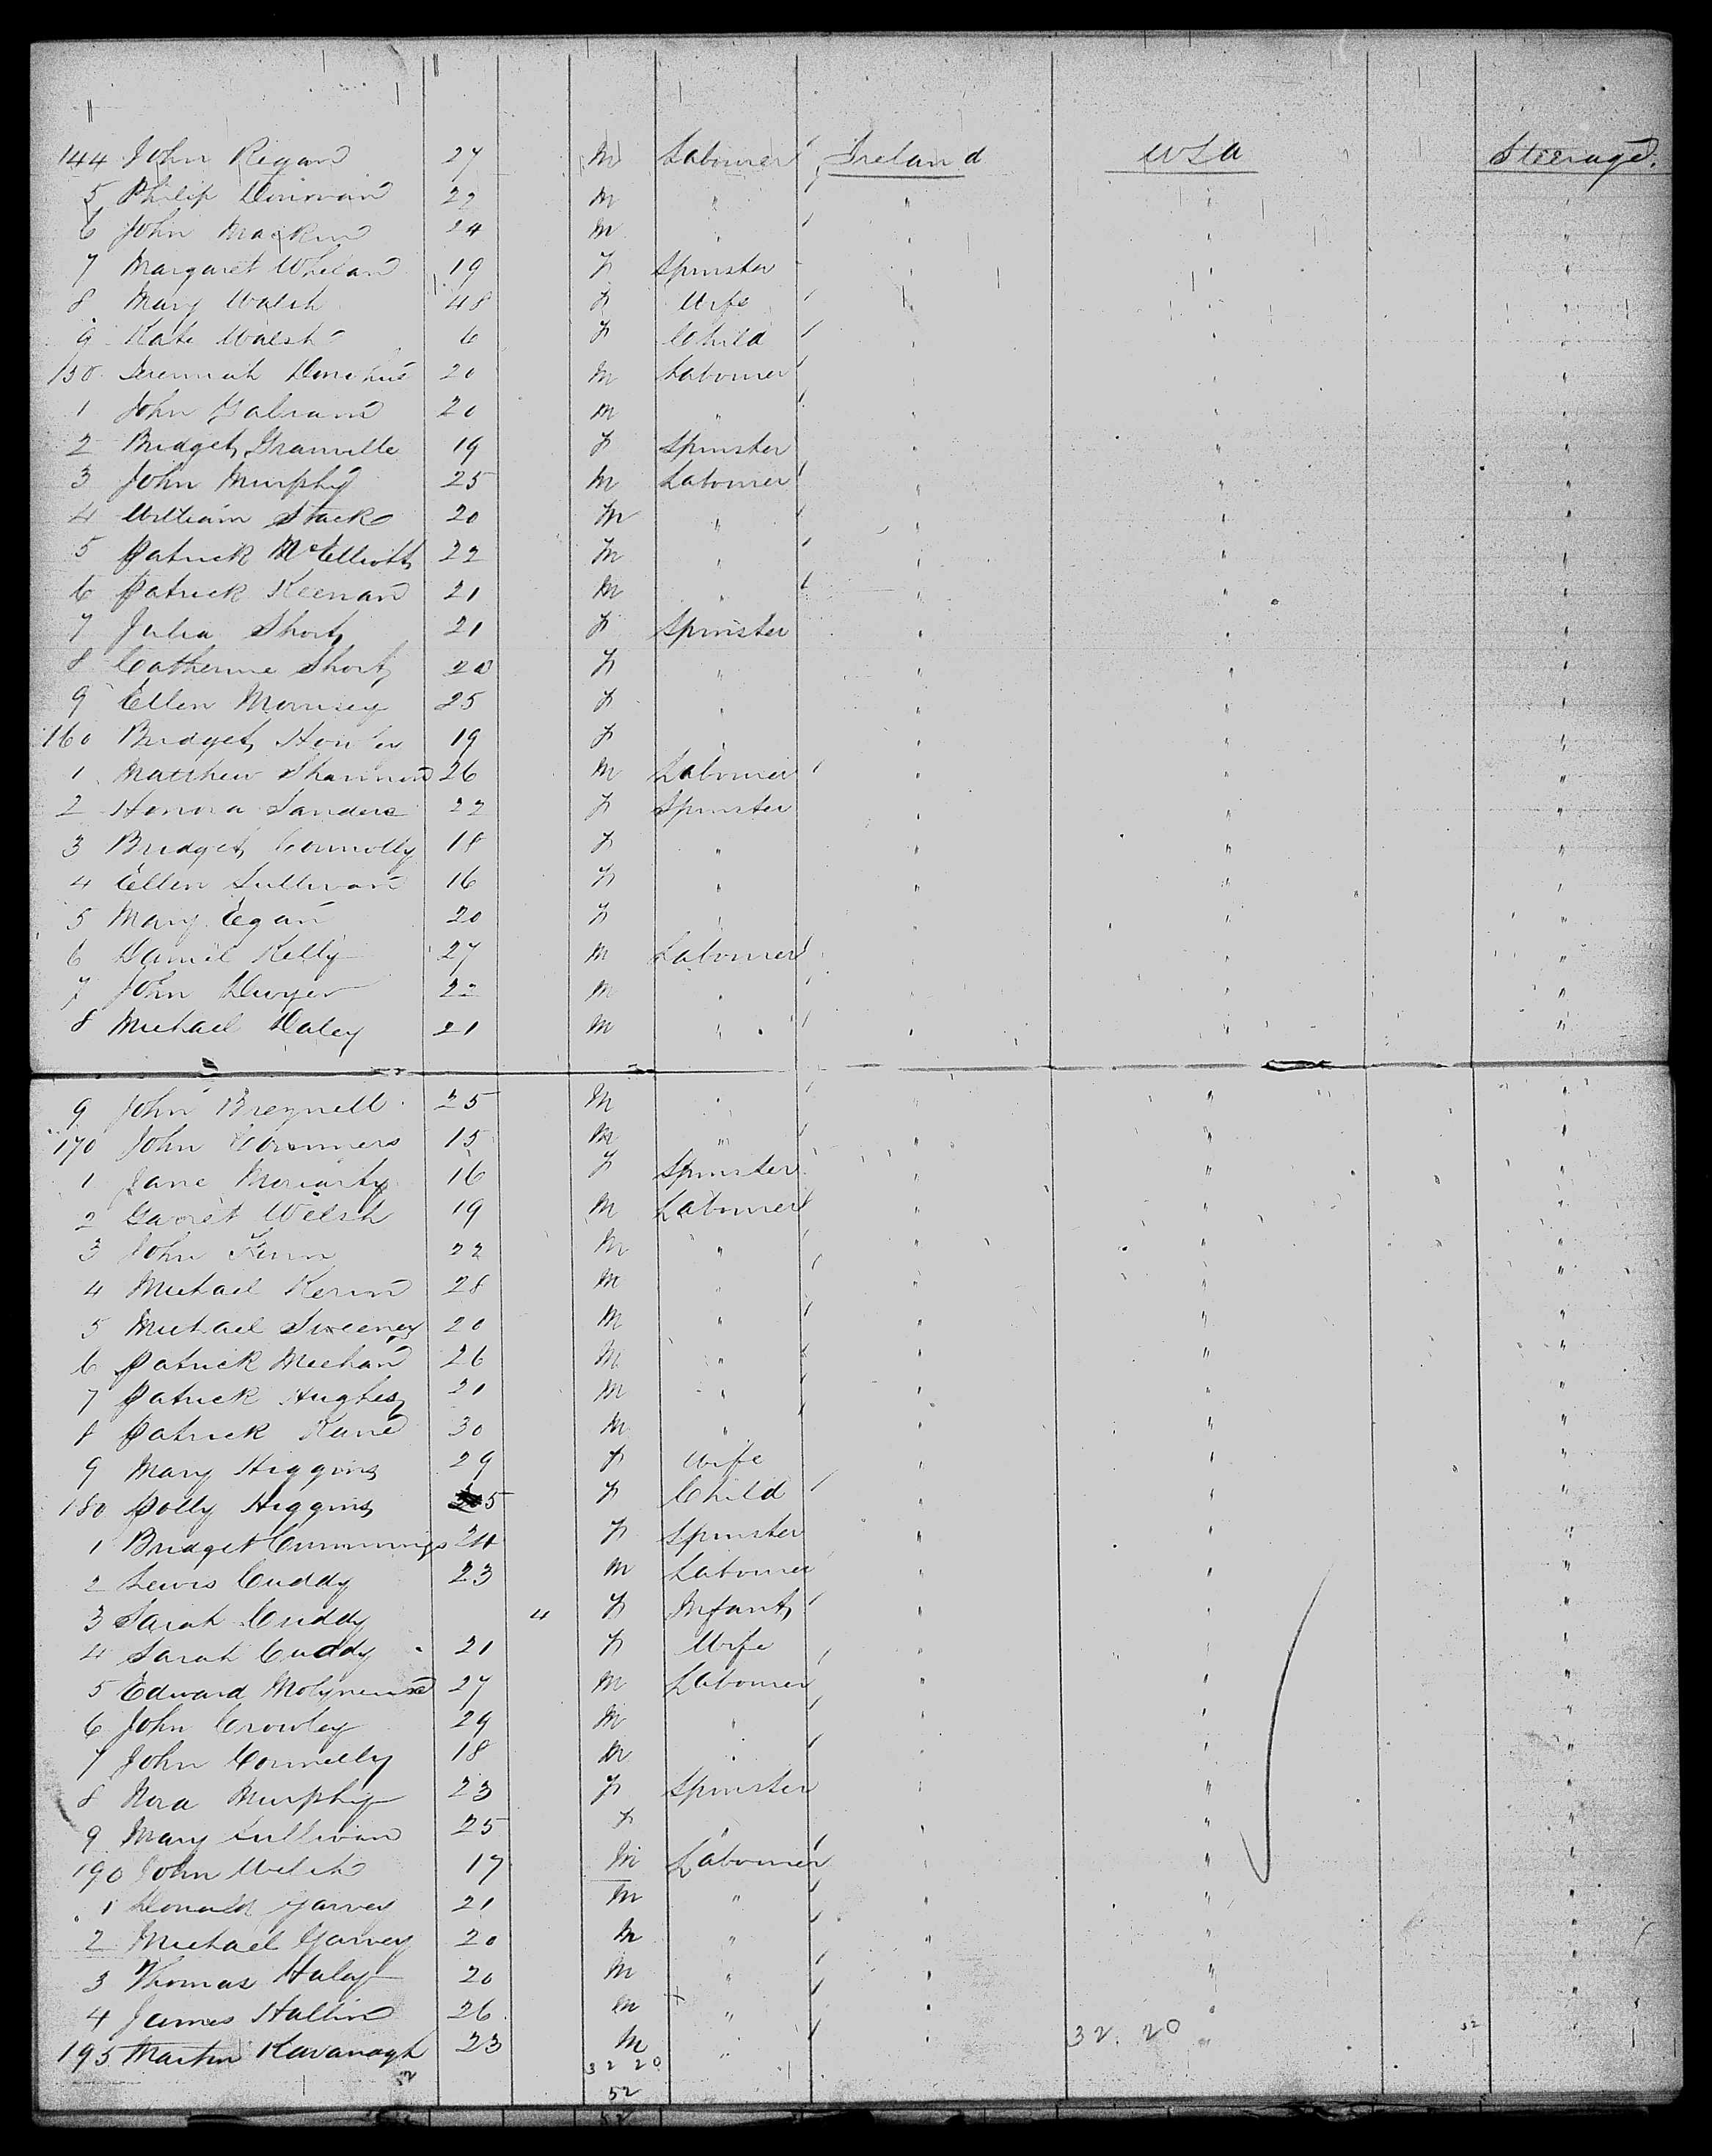 144 John Rigan 27 M Labourer Ireland USA Steerage.
5 Philip Donovan 22 M " " " "
6 John 24 M " " " "
7 Margaret Whelan 19 F Spinster " " "
8 Mary Walsh 48 F Wife " " "
9 Kate Walsh 6 F Child " " "
150 Jeremiah Donohue 20 M Labourer " " "
1 John 20 M " " " "
2 Bridget Granville 19 F Spinster " " "
3 John Murphy 25 M Labourer " " "
4 William Stack 20 M " " " "
5 Patrick McElliott 22 M " " " "
6 Patrick Keenan 21 M " " " "
7 Julia Short 21 F Spinster " " "
8 Catherine Short 20 F " " " "
9 Ellen Morrisey 25 F " " " "
160 Bridget 19 F " " " "
1 Matthew Shannon 26 M Labourer " " "
2 Honora Sanders 22 F Spinster " " "
3 Bridget Connolly 18 F " " " "
4 Ellen Sullivan 16 F " " " "
5 Mary Egan 20 F " " " "
6 Daniel Kelly 27 M Labourer " " "
7 John Dwyer 22 M " " " "
8 Michael Daley 21 M " " " "
9 John 25 M " " " "
170 John Commers 15 M " " " "
1 Jane Moriarty 16 F Spinster " " "
2 Garret Welsh 19 M Labourer " " "
3 John 22 M " " " "
4 Michael Kerin 28 M " " " "
5 Michael Sweeney 20 M " " " "
6 Patrick Meehan 26 M " " " "
7 Patrick Hughes 21 M " " " "
8 Patrick Kane 30 M " " " "
9 Mary Higgins 29 F Wife " " "
180 Polly Higgins 5 F Child " " "
1 Bridget Cummings 24 F Spinster " " "
2 Lewis Cuddy 23 M Labourer " " "
3 Sarah Cuddy 4 F Infant " " "
4 Sarah Cuddy 21 F Wife " " "
5 Edward Molyneux 27 M Labourer " " "
6 John Crowley 29 M " " " "
7 John Connelly 18 M " " " "
8 Nora Murphy 23 F Spinster " " "
9 Mary Sullivan 25 F " " " "
190 John Welsh 17 M Labourer " " "
1 Garvey 21 M " " " "
2 Michael Garvey 20 M " " " "
3 Thomas Haley 20 M " " " "
4 James Hallin 26 M " " " "
195 Martin Kavanagh 23 M " " 32. 20 " 52
52 32 20
52
52